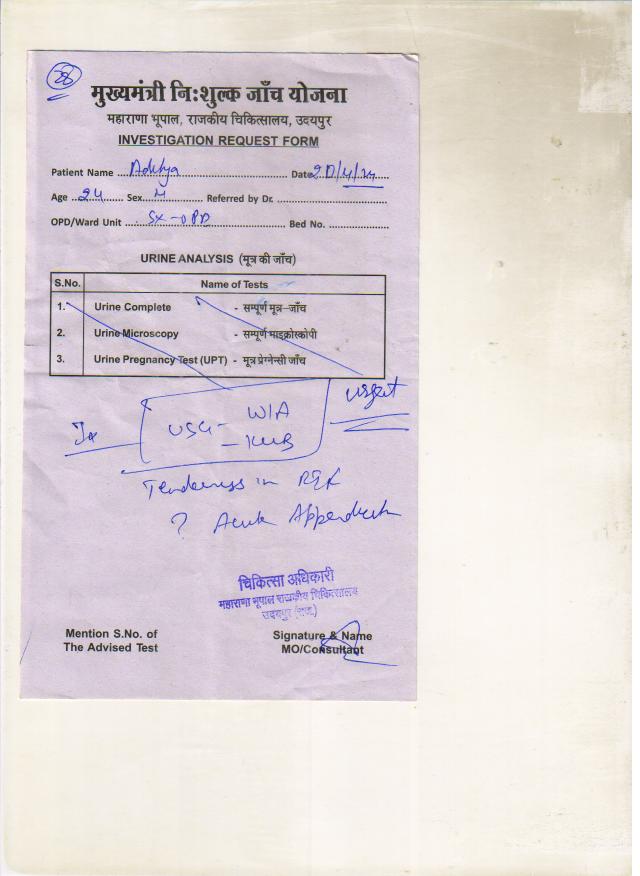 28
मुख्यमंत्री निःशुल्क जाँच योजना
महाराणा भूपाल, राजकीय चिकित्सालय, उदयपुर
INVESTIGATION REQUEST FORM
Patient Name ... Aditya ... Date 20/4/24
Age ... 24 ... Sex ... M ... Referred by Dr. ...
OPD/Ward Unit ... Sx-OPD ... Bed No. ...
URINE ANALYSIS (मूत्र की जाँच)
S.No. Name of Tests
1. Urine Complete - सम्पूर्ण मूत्र–जाँच
2. Urine Microscopy - सम्पूर्ण माइक्रोस्कोपी
3. Urine Pregnancy Test (UPT) - मूत्र प्रेग्नेन्सी जाँच
urgent
USG - W/A
- KUB
Tenderness in
? Acute Appendicitis
चिकित्सा अधिकारी
महाराणा भूपाल राजकीय चिकित्सालय
उदयपुर (राज.)
Mention S.No. of Signature & Name
The Advised Test MO/Consultant